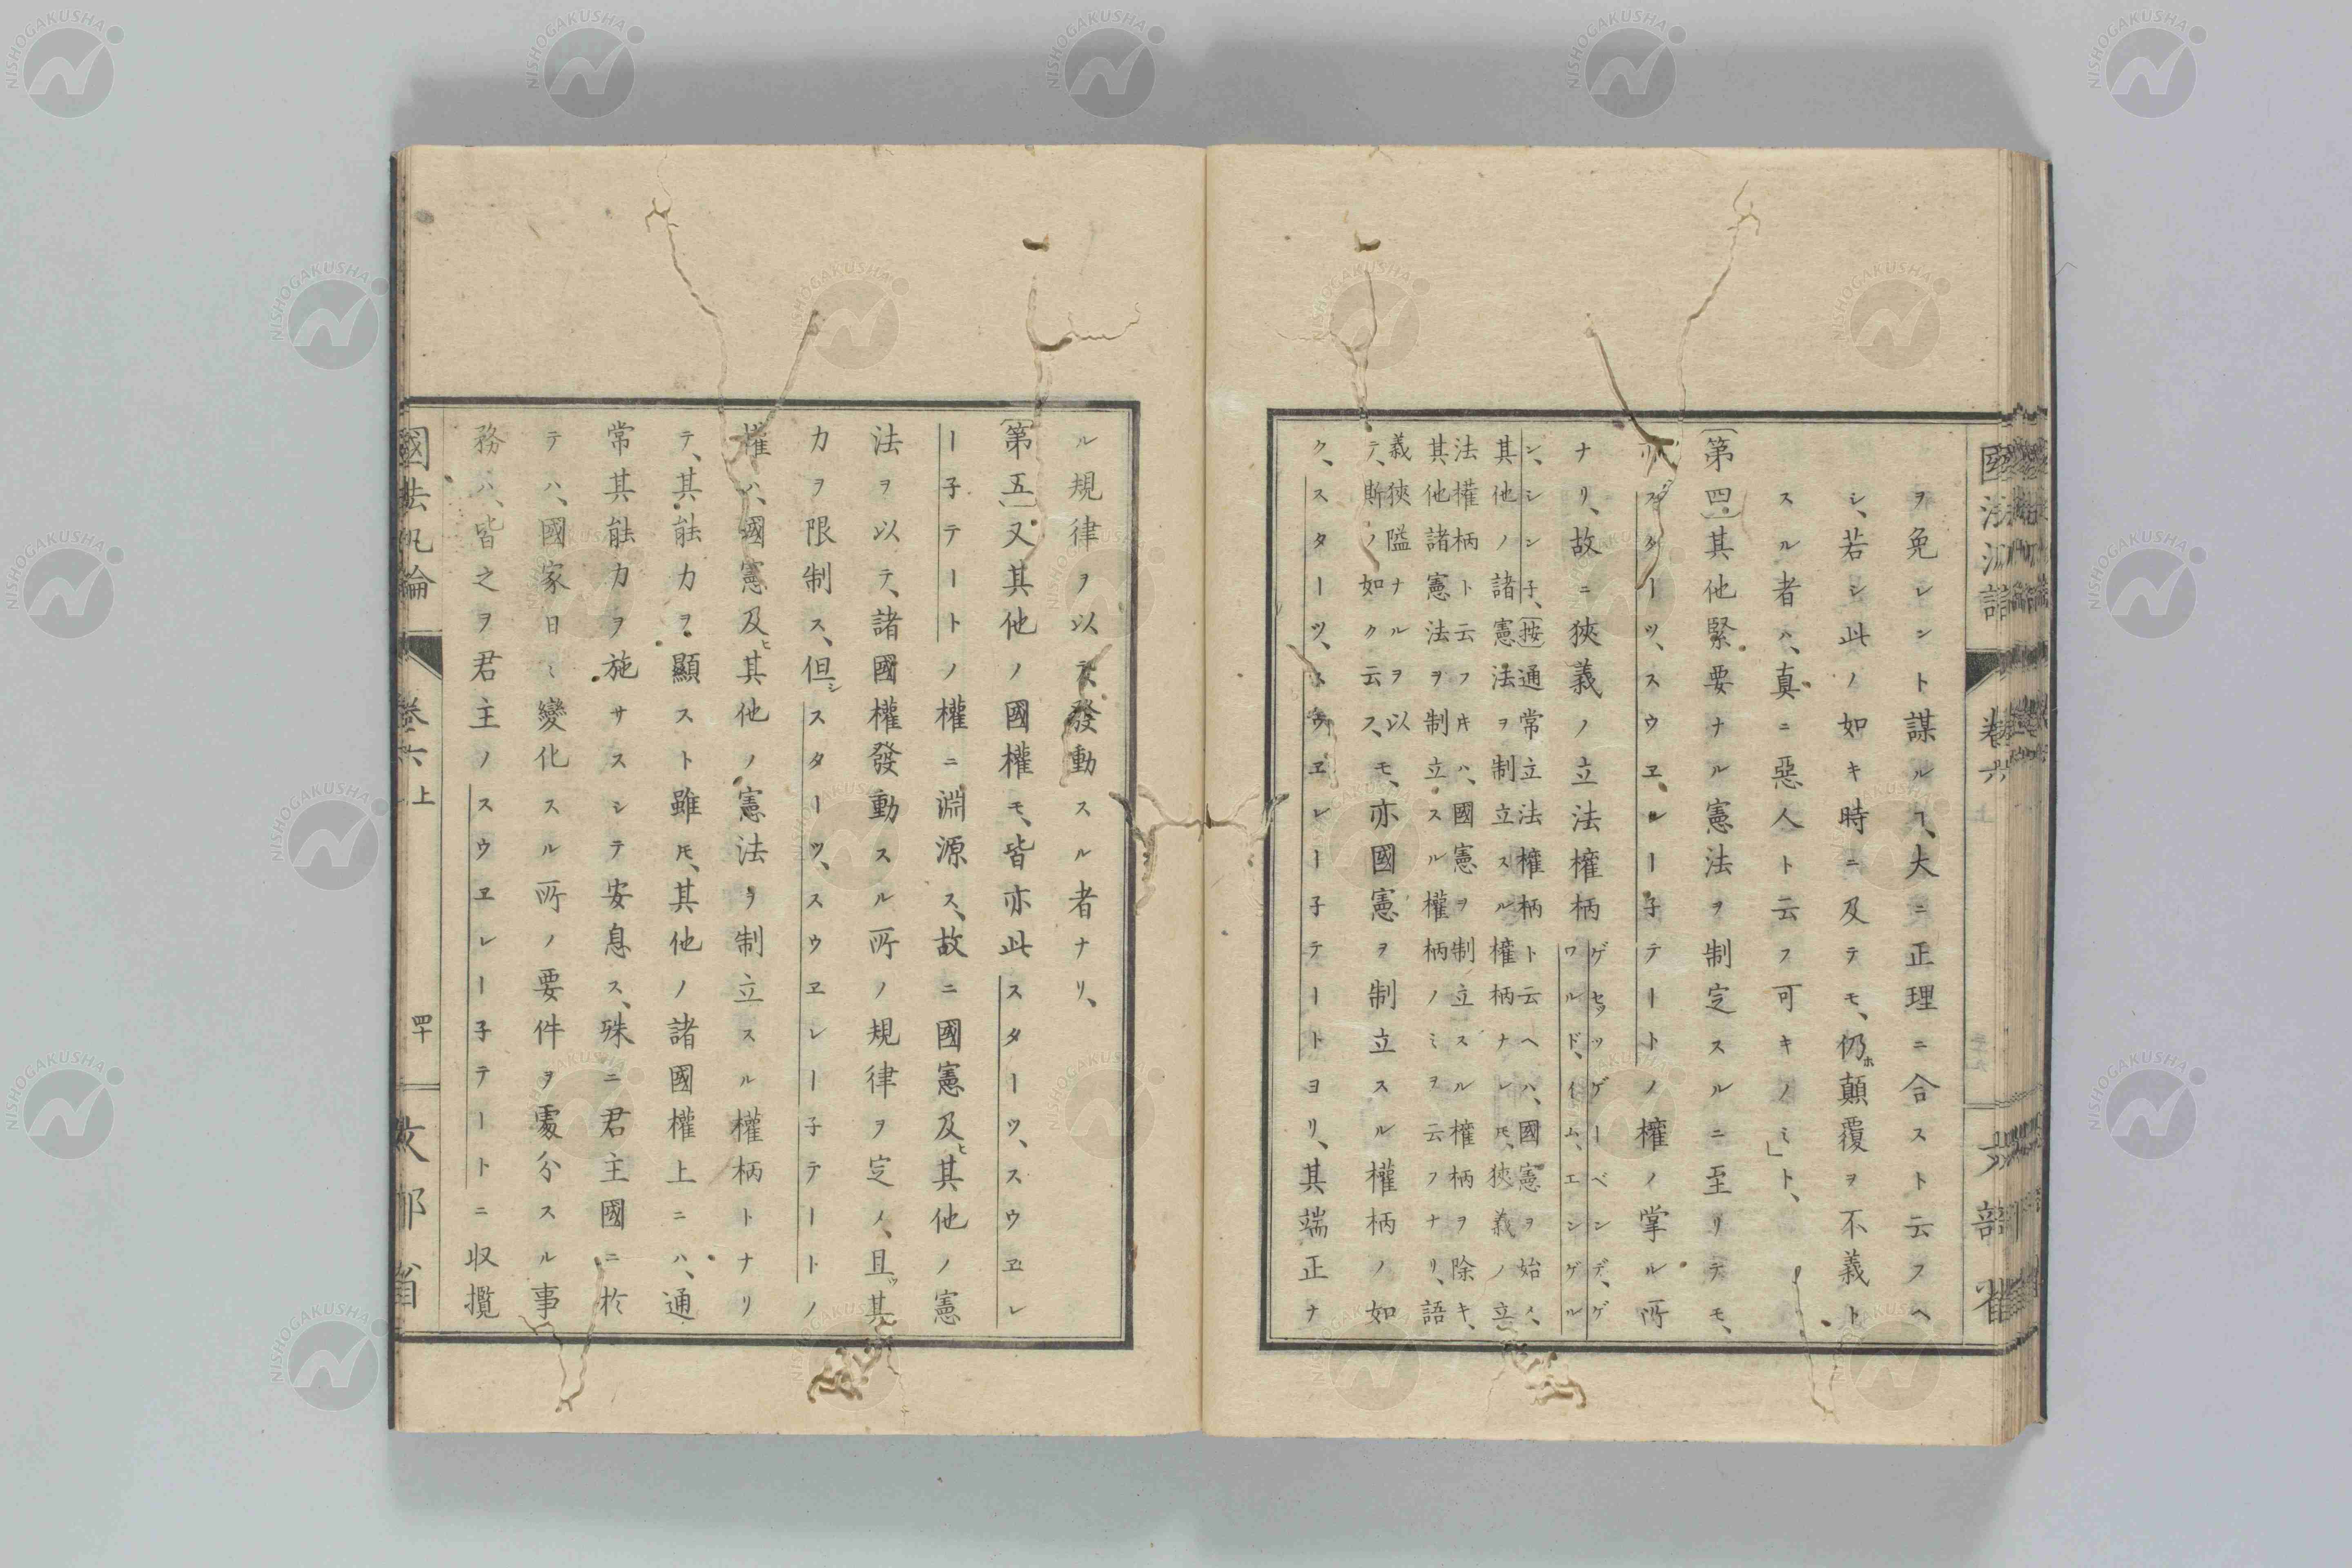 ヲ免レント謀ルヿ、大ニ正理ニ合スト云フヘ
シ、若シ此ノ如キ時ニ及テモ、仍ホ顛覆ヲ不義ト
スル者ハ、真ニ惡人ト云フ可キノミ」ト、
〔第四〕其他緊要ナル憲法ヲ制定スルニ至リテモ、
亦スターツ、スウヱレー子テートノ權ノ掌ル所
ナリ、故ニ狹義ノ立法權柄
ゲセッツゲーベンデ、ゲ
ワルド、イム、エンゲル
ン、シンン子、〔按〕通常立法權柄ト云ヘハ、國憲ヲ始メ、
其他ノ諸憲法ヲ制立スル權柄ナレ𪜈、狹義ノ立
法權柄ト云フ𪜈ハ、國憲ヲ制立スル權柄ヲ除キ、
其他諸憲法ヲ制立スル權柄ノミヲ云フナリ、語
義狹隘ナルヲ以
テ、斯ノ如ク云ス、モ、亦國憲ヲ制立スル權柄ノ如
ク、スターツ、スウヱレー子テートヨリ、其端正ナ
國法汎論
卷六
上
文部省
ル規律ヲ以テ發動スル者ナリ、
〔第五〕又其他ノ國權モ、皆亦此スターツ、スウヱレ
ー子テートノ權ニ淵源ス、故ニ國憲及ヒ其他ノ憲
法ヲ以テ、諸國權發動スル所ノ規律ヲ定メ、且ツ其
力ヲ限制ス、但シスターツ、スウヱレー子テートノ
權ハ、國憲及ヒ其他ノ憲法ヲ制立スル權柄トナリ
テ、其能力ヲ顯スト雖𪜈、其他ノ諸國權上ニハ、通
常其能力ヲ施サスシテ安息ス、殊ニ君主國ニ於
テハ、國家日ニ變化スル所ノ要件ヲ處分スル事
務ハ、皆之ヲ君主ノスウヱレー子テートニ収攬
國法汎論
卷六
上
四十
文部省